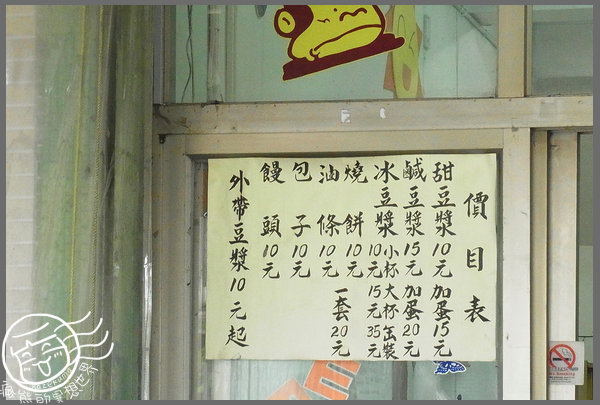 價目表
甜豆漿10元 加蛋15元
鹹豆漿15元 加蛋20元
冰豆漿10元小杯 15元大杯 35元缶裝
燒餅10元
油條10元 一套20元
包子10元
饅頭10元
外帶豆漿10元起